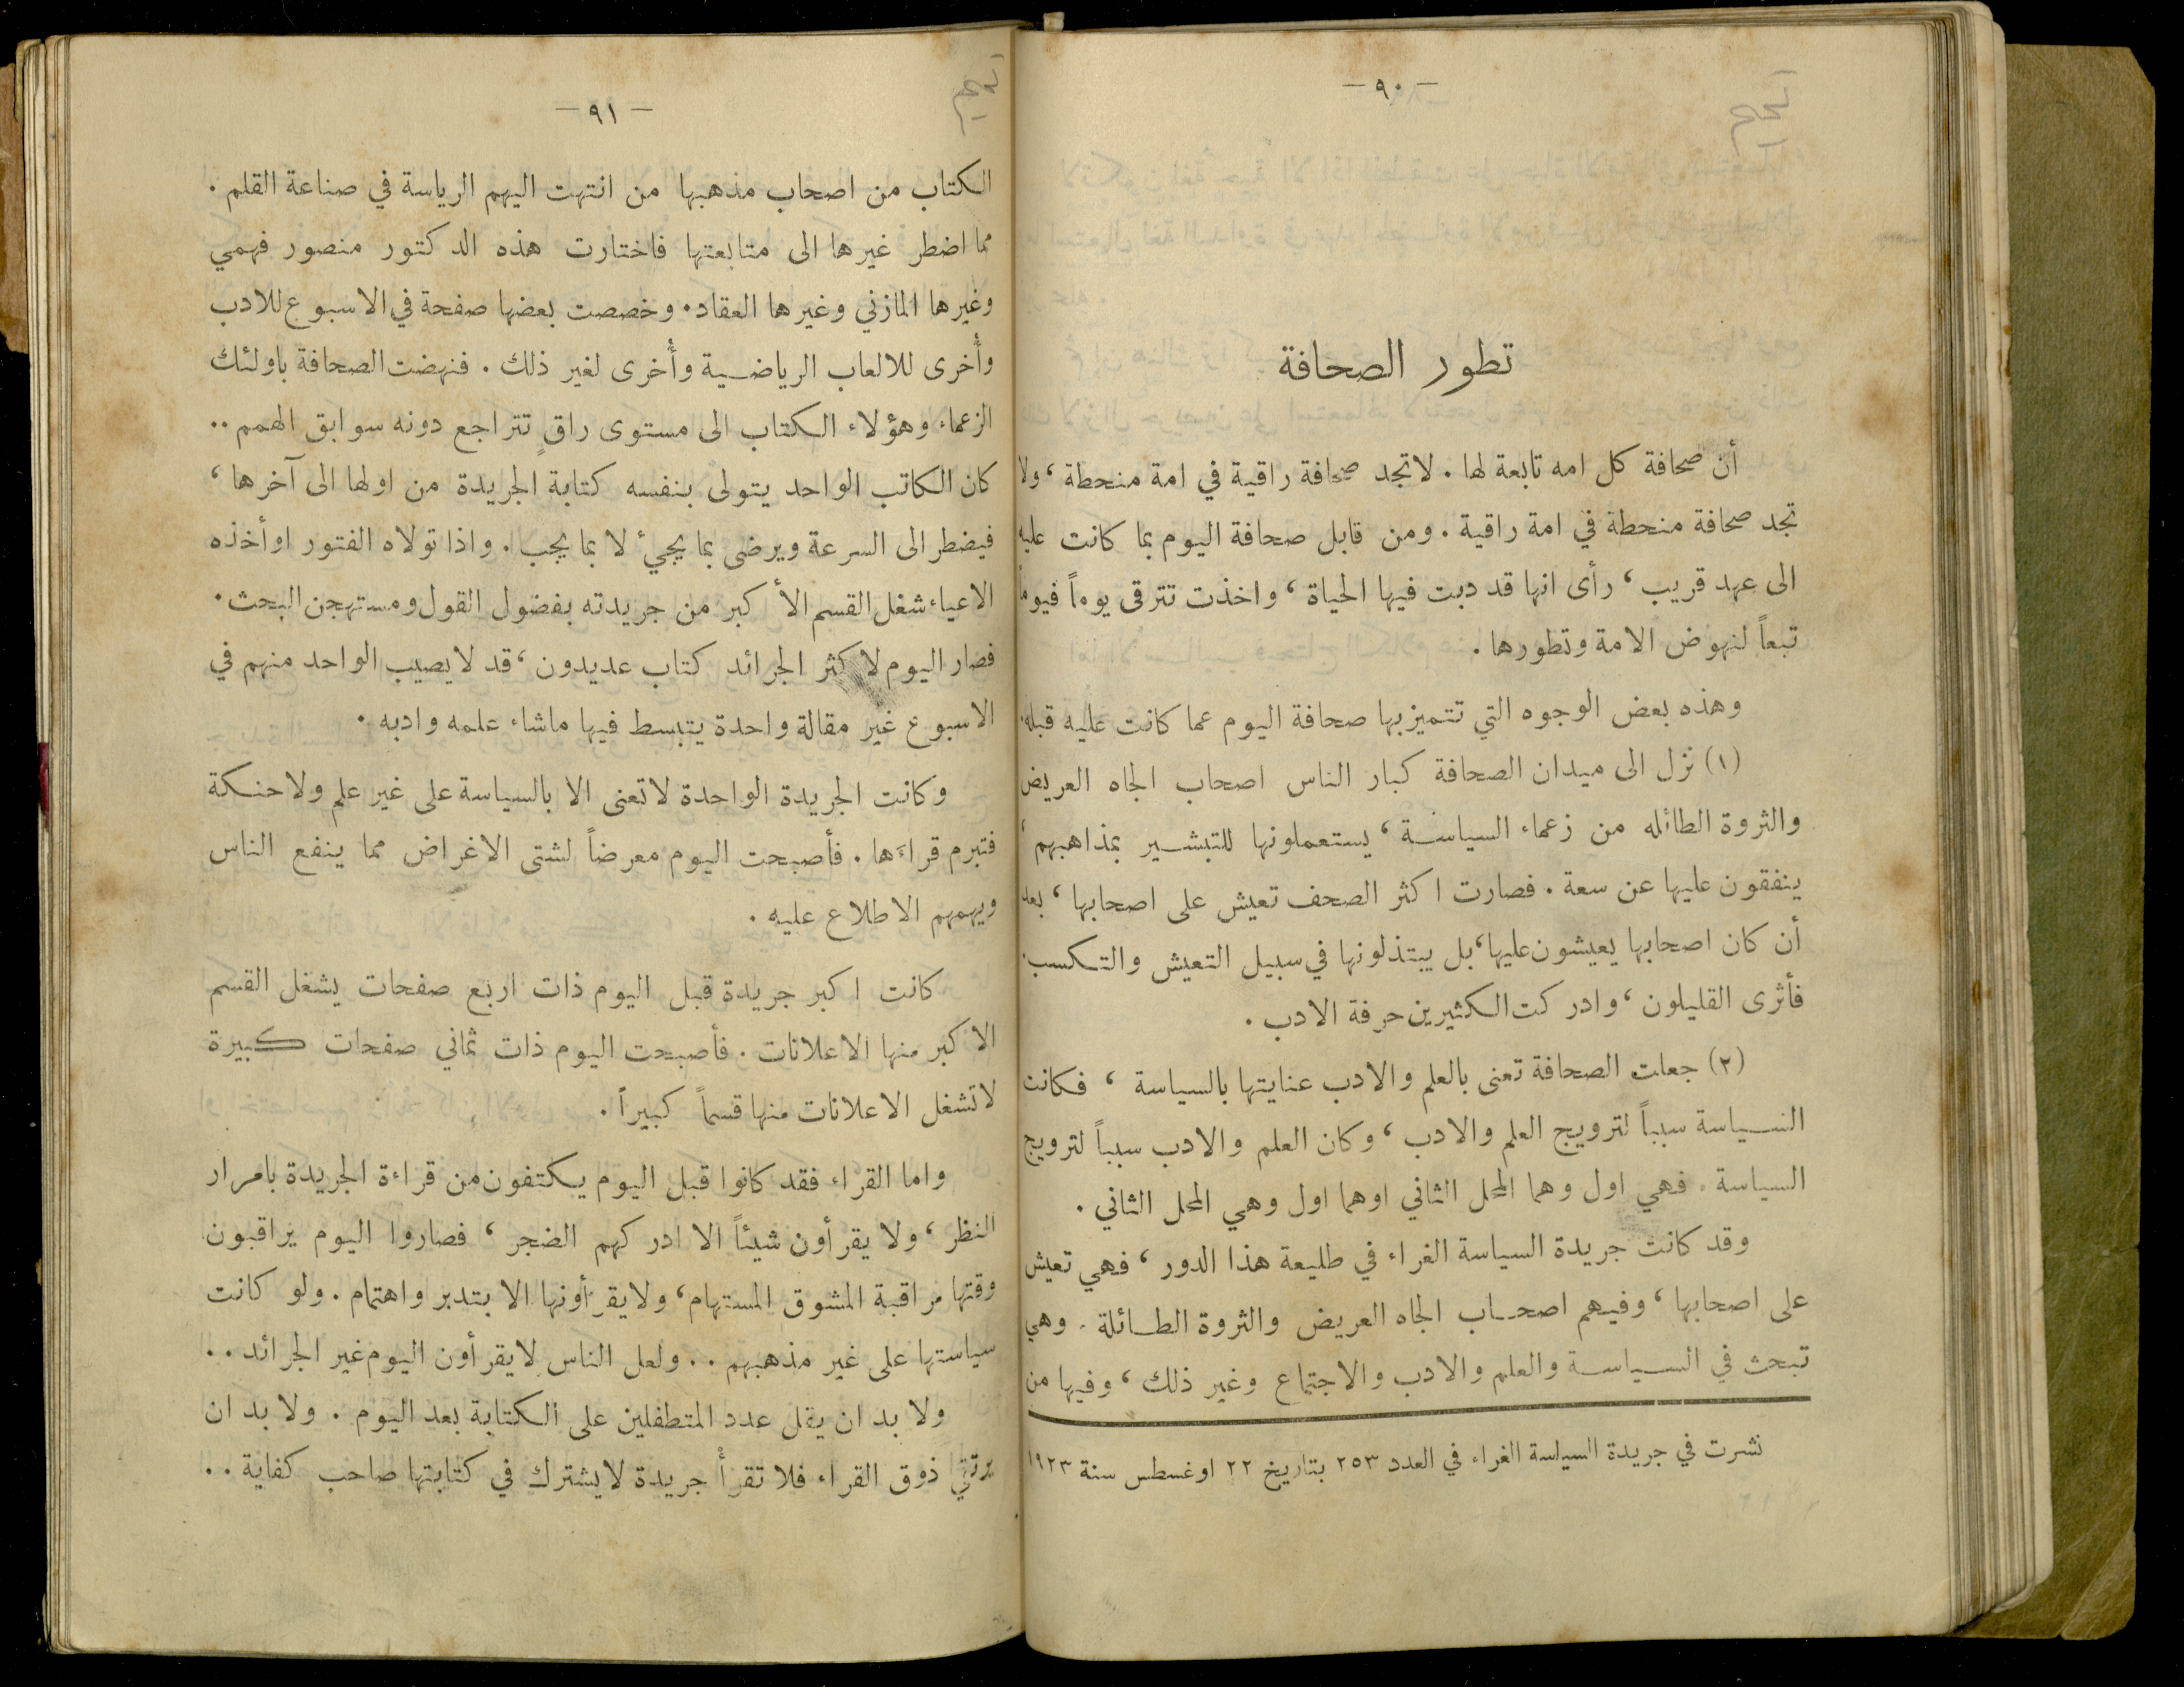 — ٩٠ —
تطور الصحافة
أن صحافة كل امه تابعة لها . لا تجد صحافة راقية في امة منحطة ، ولا
تجد صحافة منحطة في امة راقية . ومن قابل صحافة اليوم بما كانت عليه
الى عهد قريب ، رأى انها قد دبت فيها الحياة ، واخذت تترقى يوماً فيوماً
تبعاً لنهوض الامة وتطورها .
وهذه بعض الوجوه التي تتميز بها صحافة اليوم عما كانت عليه قبله .
(١) نزل الى ميدان الصحافة كبار الناس اصحاب الجاه العريض
والثروة الطائله من زعماء السياسة ، يستعملونها للتبشير بمذاهبهم ،
ينفقون عليها عن سعة . فصارت اكثر الصحف تعيش على اصحابها ، بعد
أن كان اصحابها يعيشون عليها ، بل يبتذلونها في سبيل التعيش والتكسب .
فأثرى القليلون ، وادركت الكثيرين حرفة الادب .
(٢) جعلت الصحافة تعنى بالعلم والادب عنايتها بالسياسة ، فكانت
السياسة سبباً لترويج العلم والادب ، وكان العلم والادب سبباً لترويج
السياسة . فهي اول وهما المحل الثاني اوهما اول وهي المحل الثاني .
وقد كانت جريدة السياسة الغراء في طليعة هذا الدور ، فهي تعيش
على اصحابها ، وفيهم اصحاب الجاه العريض والثروة الطائلة . وهي
تبحث في السياسة والعلم والادب والاجتماع وغير ذلك ، وفيها من
نشرت في جريدة السياسة الغراء في العدد ٢٥٣ بتاريخ ٢٢ اوغسطس سنة ١٩٢٣
— ٩١ —
الكتاب من اصحاب مذهبها من انتهت اليهم الرياسة في صناعة القلم .
مما اضطر غيرها الى متابعتها فاختارت هذه الدكتور منصور فهمي
وغيرها المازني وغيرها العقاد . وخصصت بعضها صفحة في الاسبوع للادب
وأُخرى للالعاب الرياضية وأُخرى لغير ذلك . فنهضت الصحافة باولئك
الزعماء وهؤلاء الكتاب الى مستوى راقٍ تتراجع دونه سوابق الهمم ..
كان الكاتب الواحد يتولى بنفسه كتابة الجريدة من اولها الى آخرها ،
فيضطر الى السرعة ويرضى بما يجيءُ لا بما يجب . واذا تولاه الفتور او أخذه
الاعياء شغل القسم الأكبر من جريدته بفضول القول ومستهجن البحث .
فصار اليوم لاكثر الجرائد كتاب عديدون ، قد لا يصيب الواحد منهم في
الاسبوع غير مقالة واحدة يتبسط فيها ماشاء علمه وادبه .
وكانت الجريدة الواحدة لا تعنى الا بالسياسة على غير علم ولا حنكة
فتبرم قراءَها . فأصبحت اليوم معرضاً لشتى الاغراض مما ينفع الناس
ويهمهم الاطلاع عليه .
كانت اكبر جريدة قبل اليوم ذات اربع صفحات يشغل القسم
الاكبر منها الاعلانات . فأصبحت اليوم ذات ثماني صفحات كبيرة
لا تشغل الاعلانات منها قسماً كبيراً .
واما القراء فقد كانوا قبل اليوم يكتفون من قراءة الجريدة بامرار
النظر ، ولا يقرأون شيئاً الا ادركهم الضجر ، فصاروا اليوم يراقبون
وقتها مراقبة المشوق المستهام ، ولايقرأونها الا بتدبر واهتمام . ولو كانت
سياستها على غير مذهبهم .. ولعل الناس لايقرأون اليوم غير الجرائد ..
ولا بد ان يقل عدد المتطفلين على الكتابة بعد اليوم . ولا بد ان
يرتقي ذوق القراء فلا تقرأُ جريدة لايشترك في كتابتها صاحب كفاية ..